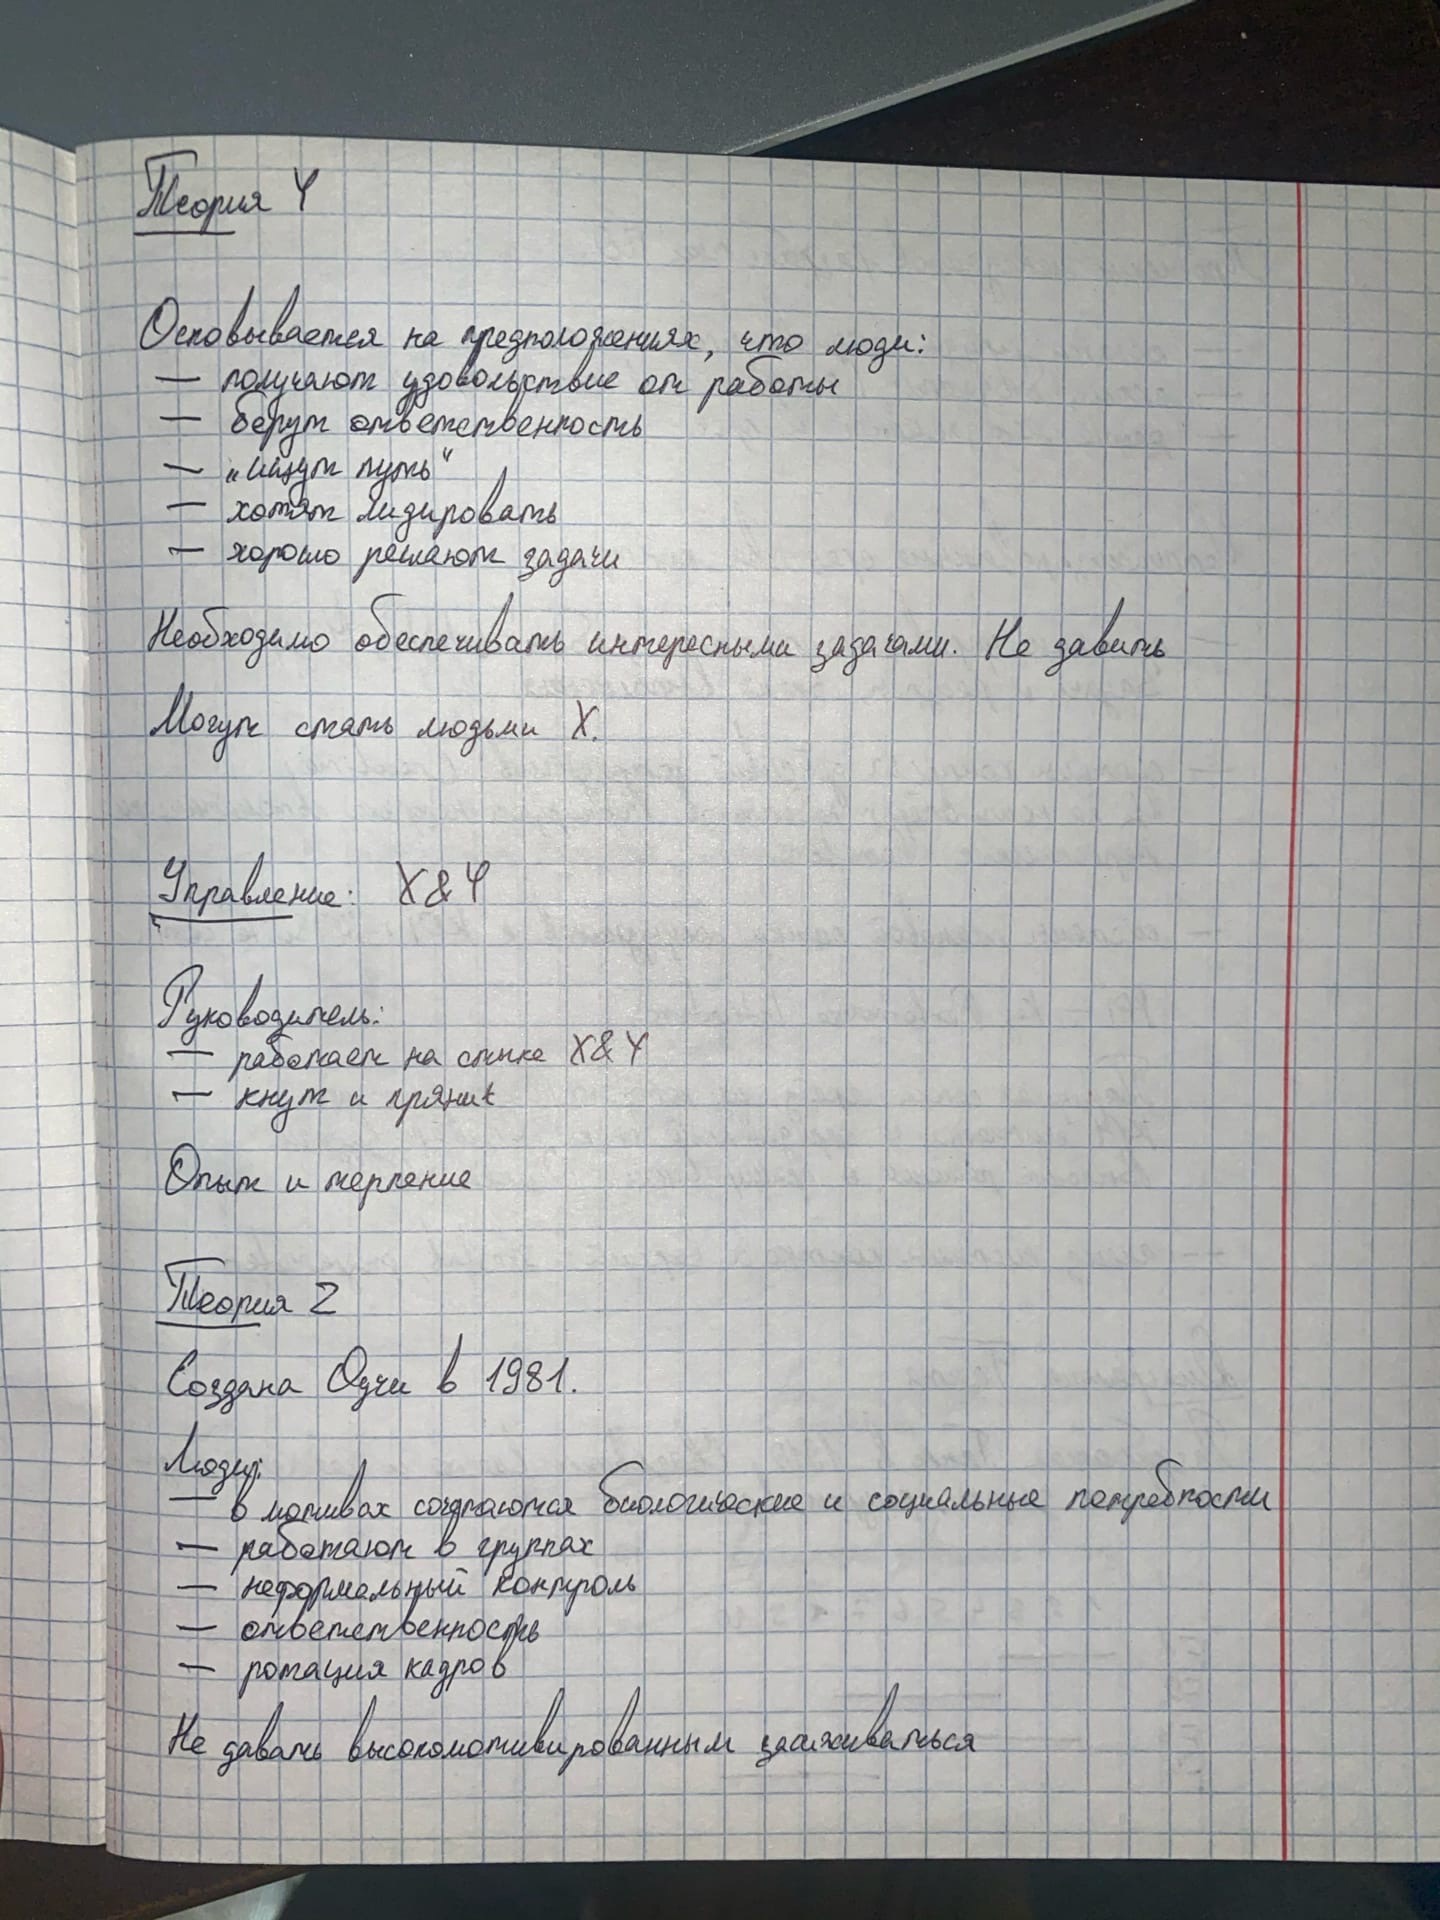 Теория Y
Основывается на предположениях, что люди:
— получают удовольствие от работы
— берут ответственность
— „ищут путь“
— хотят лидировать
— хорошо решают задачи
Необходимо обеспечивать интересными задачами. Не давить
Могут стать людьми X.
Управление: X&Y
Руководитель:
— работает на стыке X&Y
— кнут и пряник
Опыт и терпение
Теория Z
Создана Оучи в 1981.
Люди:
— в мотивах сочетаются биологические и социальные потребности
— работают в группах
— неформальный контроль
— ответственность
— ротация кадров
Не давать высокомотивированным засиживаться